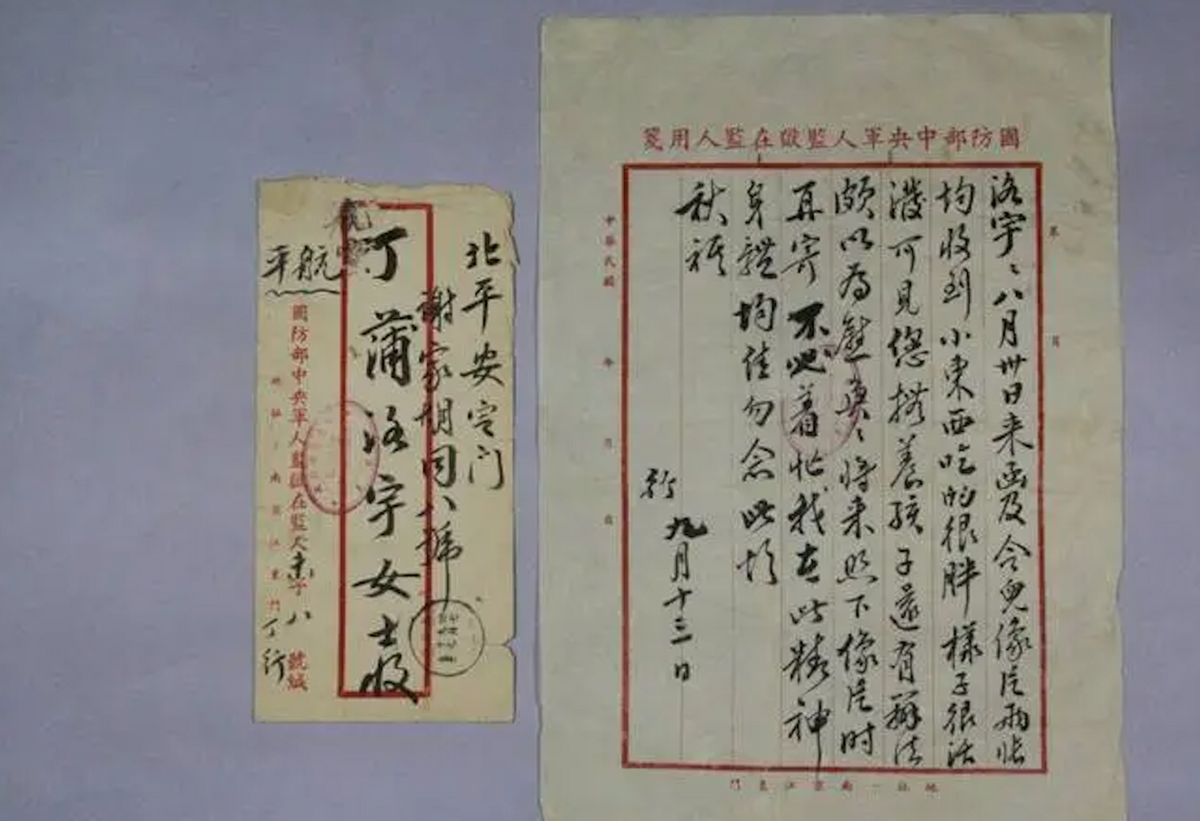 北平安定门
謝家胡同八號
丁蒲洛宇女士收
航平
國防部中央軍人監獄在監人未字八號緘
丁行
國防部中央軍人監獄在監人用箋
洛宇：八月卅日来函及令兒像片兩張
均收到小東西吃的很胖樣子很活
潑可見您撫養孩子還有辦法
頗以為慰 將来照下像片时
再寄不必着忙我在此精神
身體均佳勿念此頌
秋祺
行 九月十三日
中華民國 年 月 日
地址 南京江東門